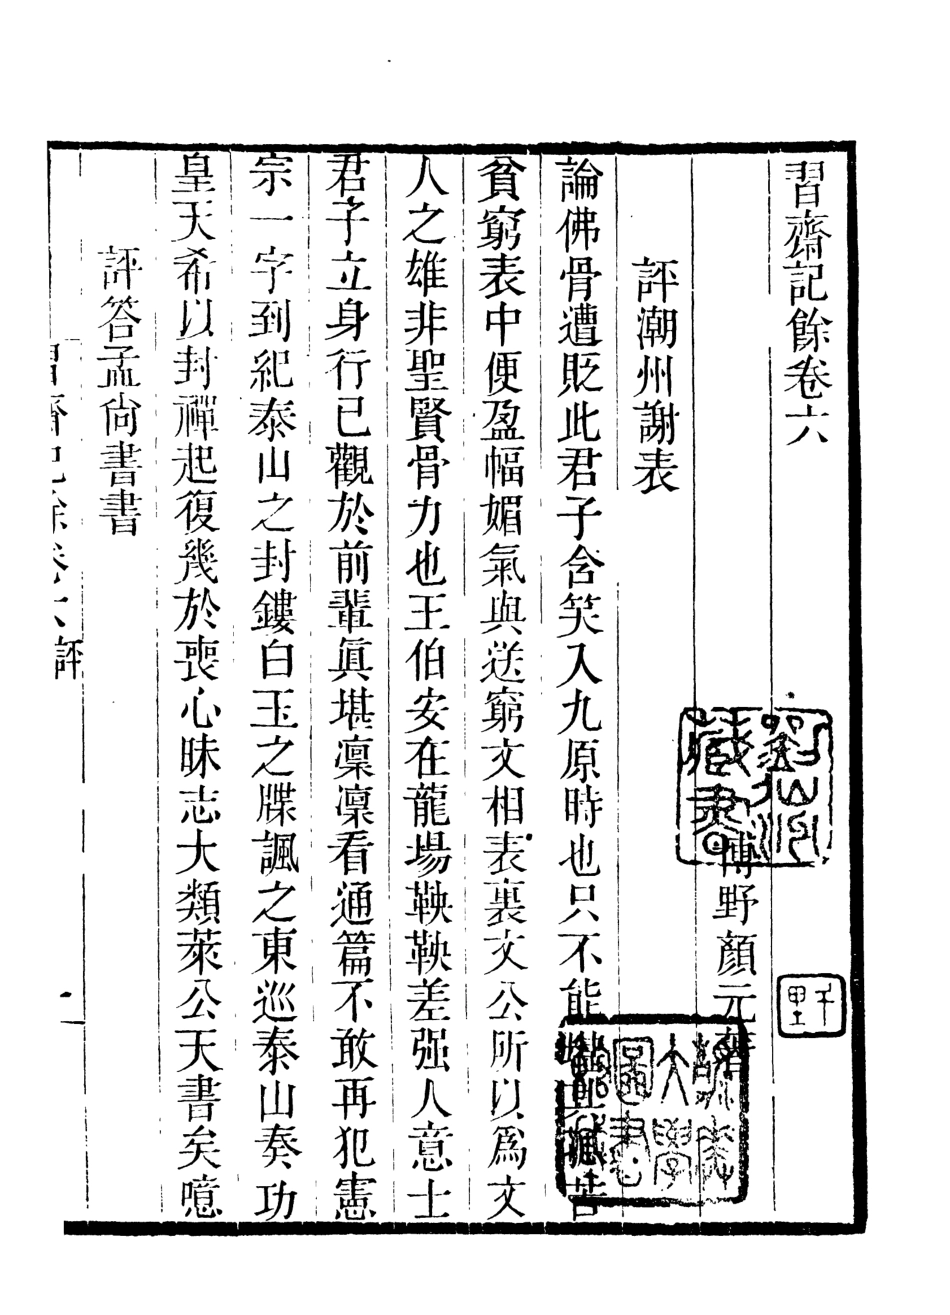 習齋記餘卷六
博野顏元著
評潮州謝表
論佛骨遭貶此君子含笑入九原時也只不能
貧窮表中便盈幅媚氣與送窮文相表裏文公所以爲文
人之雄非聖賢骨力也王伯安在龍場鞅鞅差强人意士
君子立身行己觀於前輩眞堪凜凜看通篇不敢再犯憲
宗一字到紀泰山之封鏤白玉之牒諷之東巡泰山奏功
皇天希以封禪起復幾於喪心昧志大類萊公天書矣噫
評答孟尙書書
習齋記餘卷六 評
一